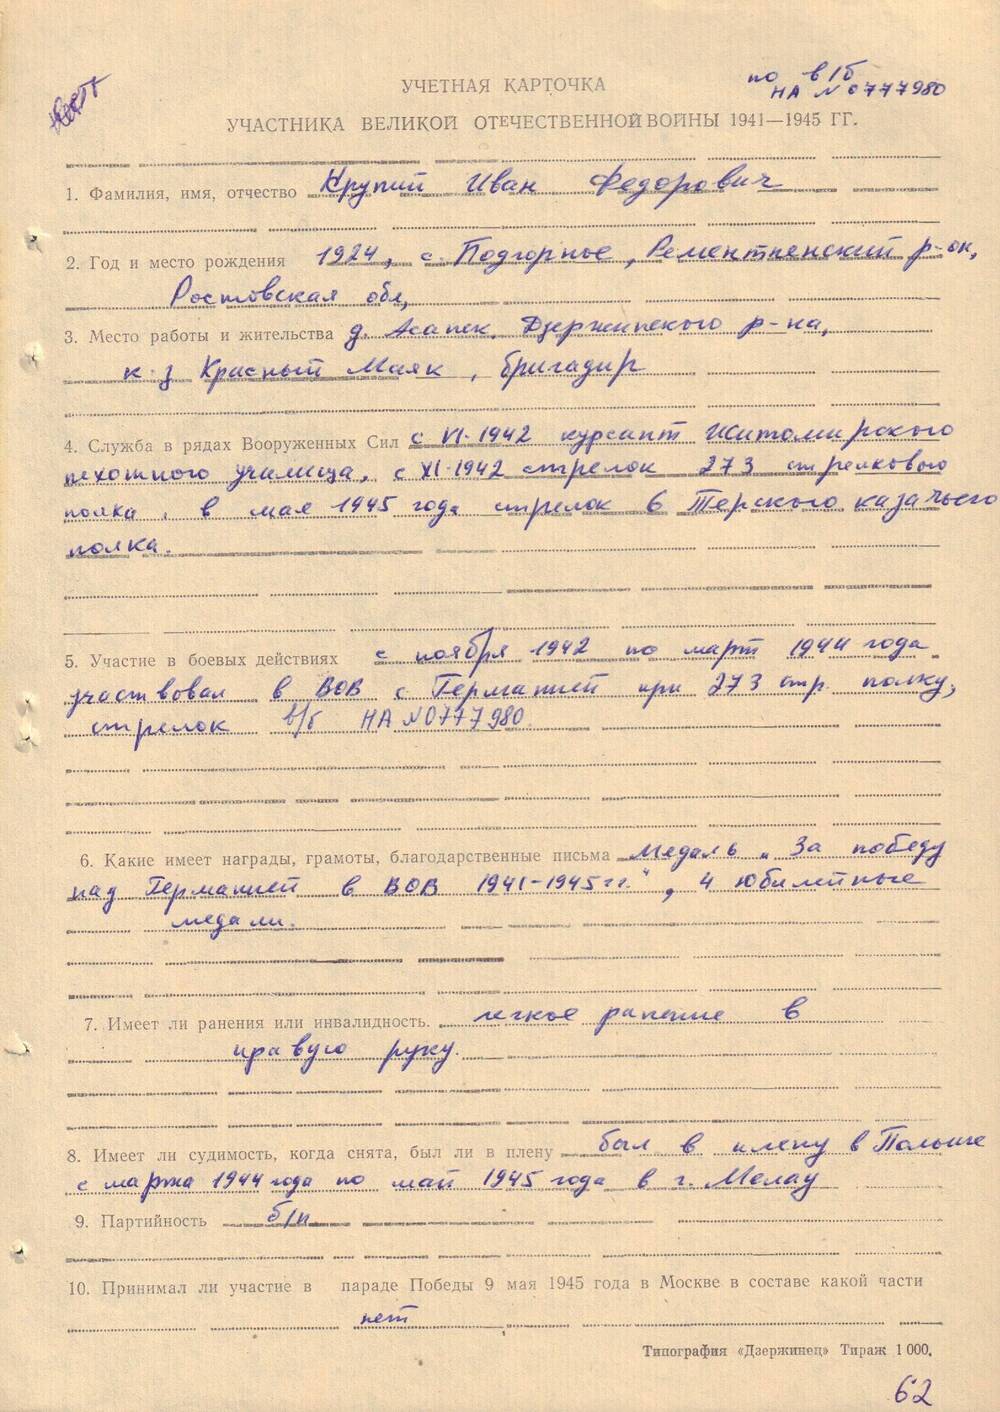 по в/б
НА № 0777980
УЧЕТНАЯ КАРТОЧКА
УЧАСТНИКА ВЕЛИКОЙ ОТЕЧЕСТВЕННОЙ ВОЙНЫ 1941—1945 ГГ.
1. Фамилия, имя, отчество Крупий Иван Федорович
2. Год и место рождения 1924, с. Подгорное, Ремонтненский р-он,
Ростовская обл,
3. Место работы и жительства д. Асапек, Дзержинского р-на,
к-з Красный Маяк, бригадир
4. Служба в рядах Вооруженных Сил с VI-1942 курсант Житомирского
пехотного училища, с XI-1942 стрелок 273 стрелкового
полка, в мая 1945 года стрелок 6 Терского казачьего
полка.
5. Участие в боевых действиях с ноября 1942 по март 1944 года
участвовал в ВОВ с Германией при 273 стр. полку,
стрелок в/б НА № 0777980
6. Какие имеет награды, грамоты, благодарственные письма Медаль „За победу
над Германией в ВОВ 1941-1945 гг.", 4 юбилейные
медали.
7. Имеет ли ранения или инвалидность. легкое ранение в
правую руку.
8. Имеет ли судимость, когда снята, был ли в плену был в плену в Польше
с марта 1944 года по май 1945 года в г. Мелау
9. Партийность б/п
10. Принимал ли участие в параде Победы 9 мая 1945 года в Москве в составе какой части
нет
Типография «Дзержинец» Тираж 1 000.
62